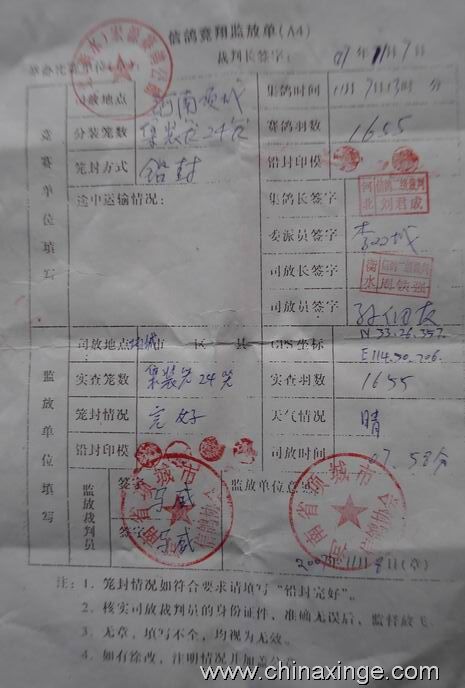 信鸽竞翔监放单(A4)
裁判长签字: 07年11月9日
竞赛单位填写
司放地点 河南项城 集鸽时间 11月9日13时 分
分装笼数 集装笼24笼 赛鸽羽数 1655
笼封方式 铅封 铅封印模
途中运输情况: 集鸽长签字 河北 信鸽一级裁判 刘君成
委派员签字
司放长签字 衡水
司放员签字
监放单位填写
司放地点 项城市 区 县 GPS坐标 N 33.26.357.
E114.50.206.
实查笼数 集装笼24笼 实查羽数 1655
笼封情况 完好 天气情况 晴
铅封印模 司放时间 07.58分
监放裁判员 签字 监放单位意见:
签字
河南省项城市信鸽协会
河南省项城市信鸽协会
2007年11月9日(章)
注: 1. 笼封情况如符合要求请填写“铅封完好”。
2. 核实司放裁判员的身份证件, 准确无误后, 监督放飞。
3. 无章, 填写不全, 均视为无效。
4. 如有涂改, 注明情况并加盖公章。
www.chinaxinge.com